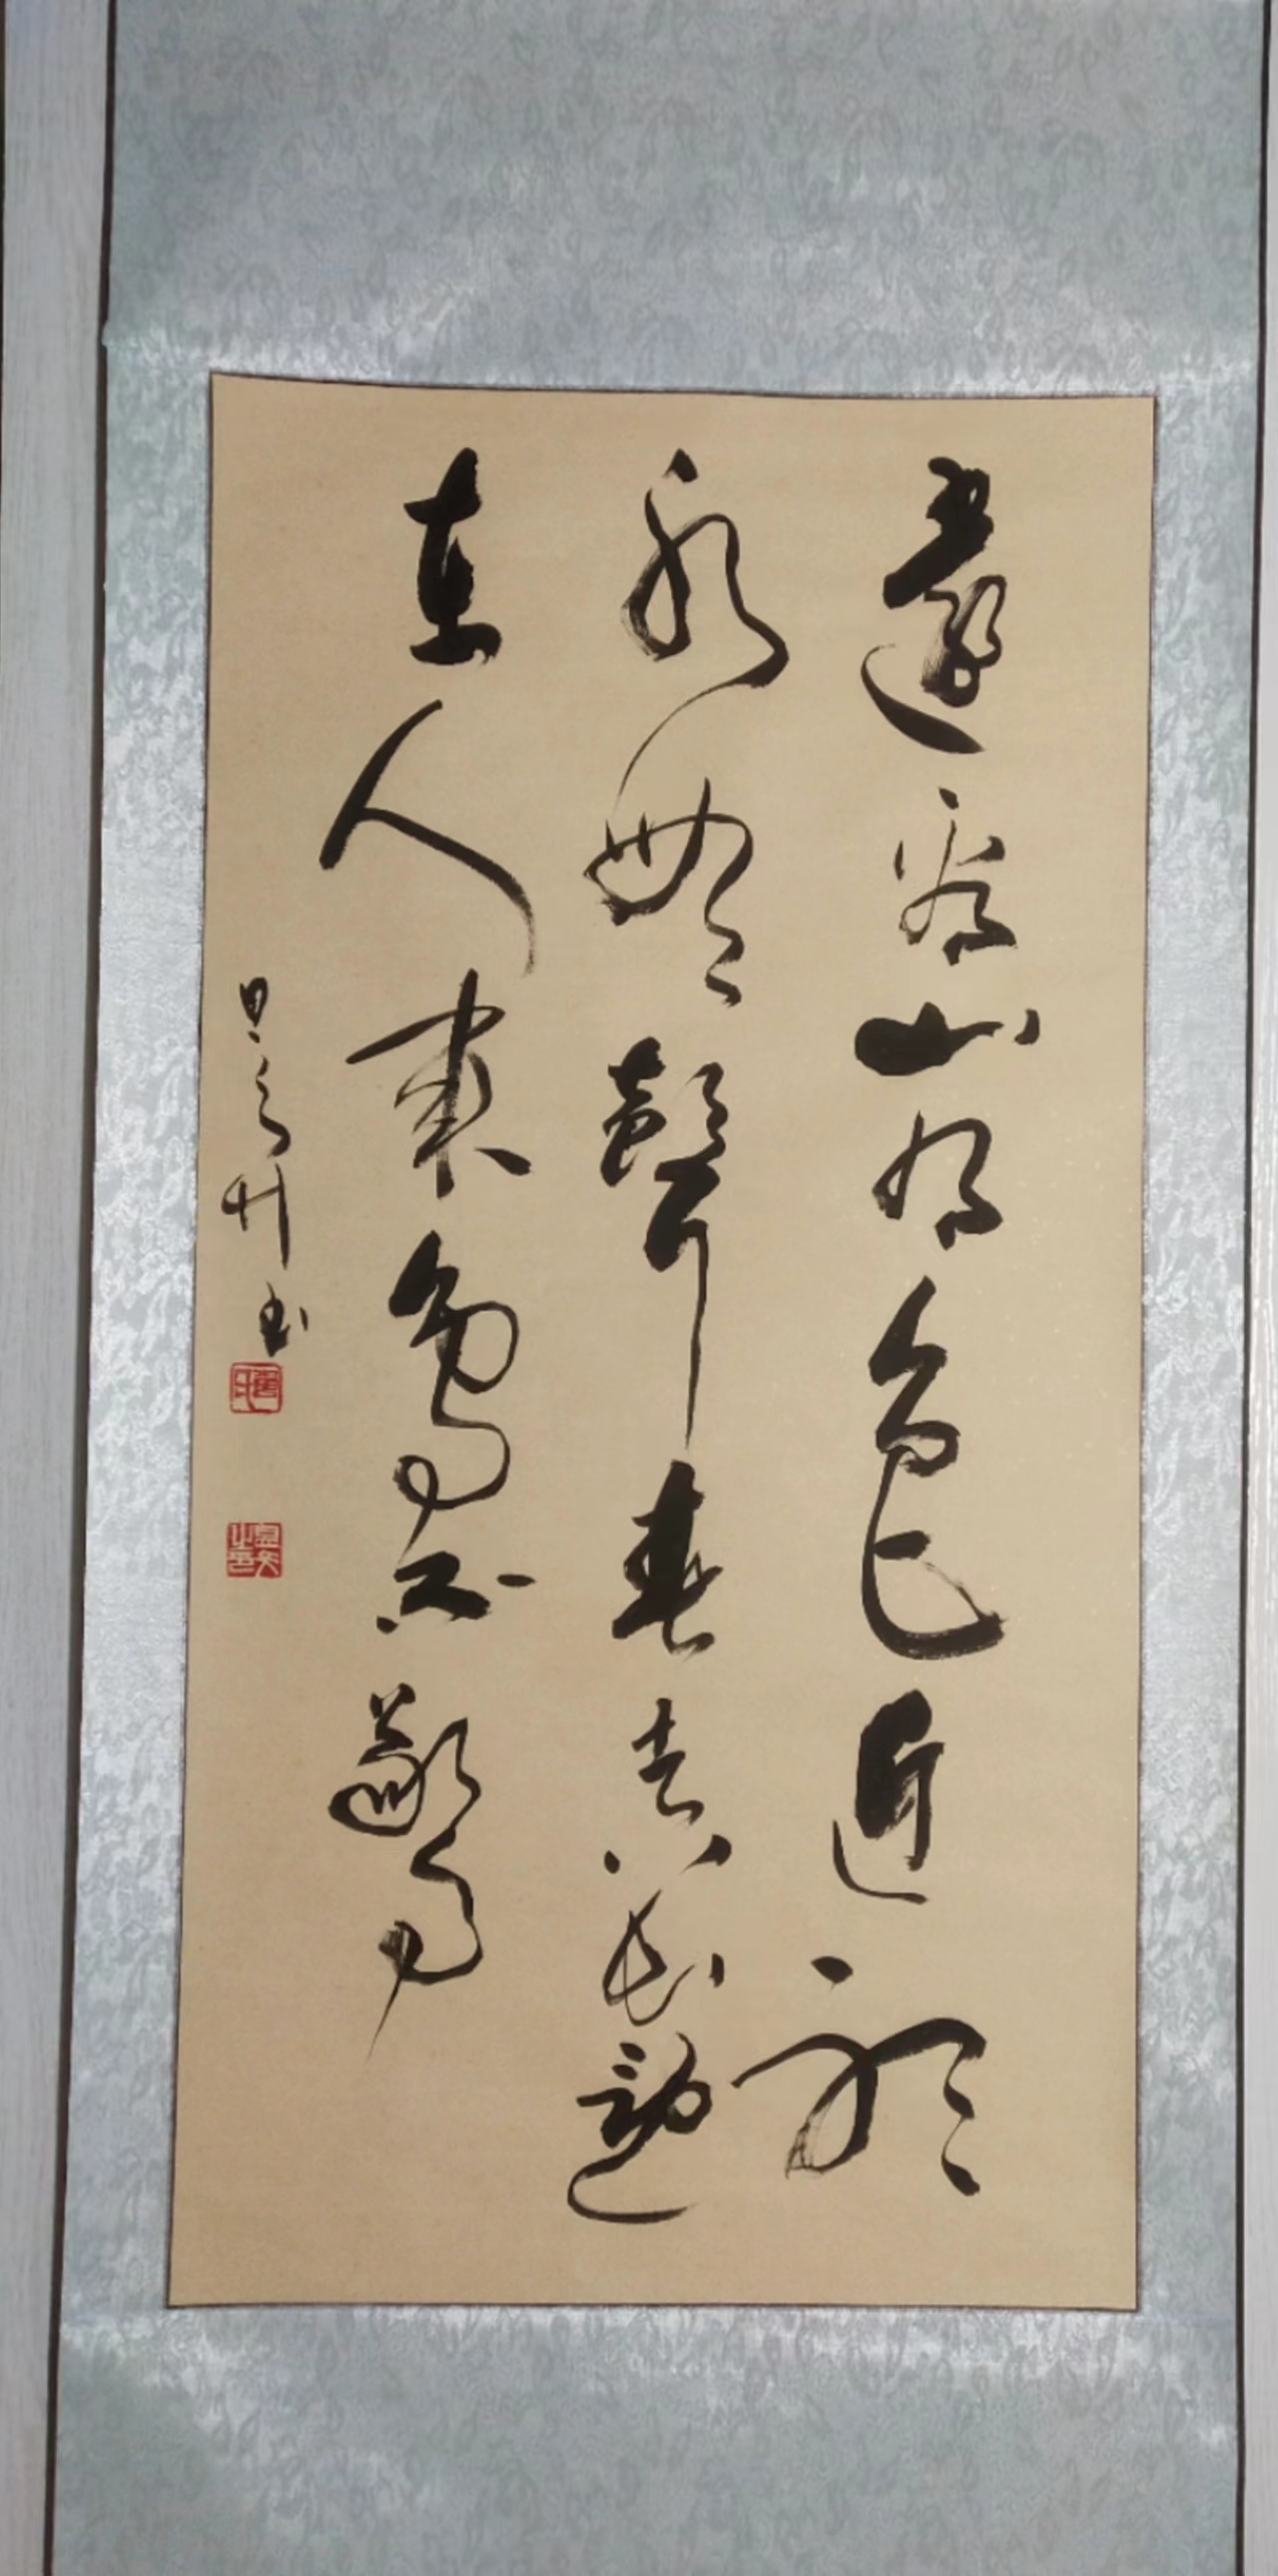 遠看山有色近聽
水無聲春去花還
在人來鳥不驚
书